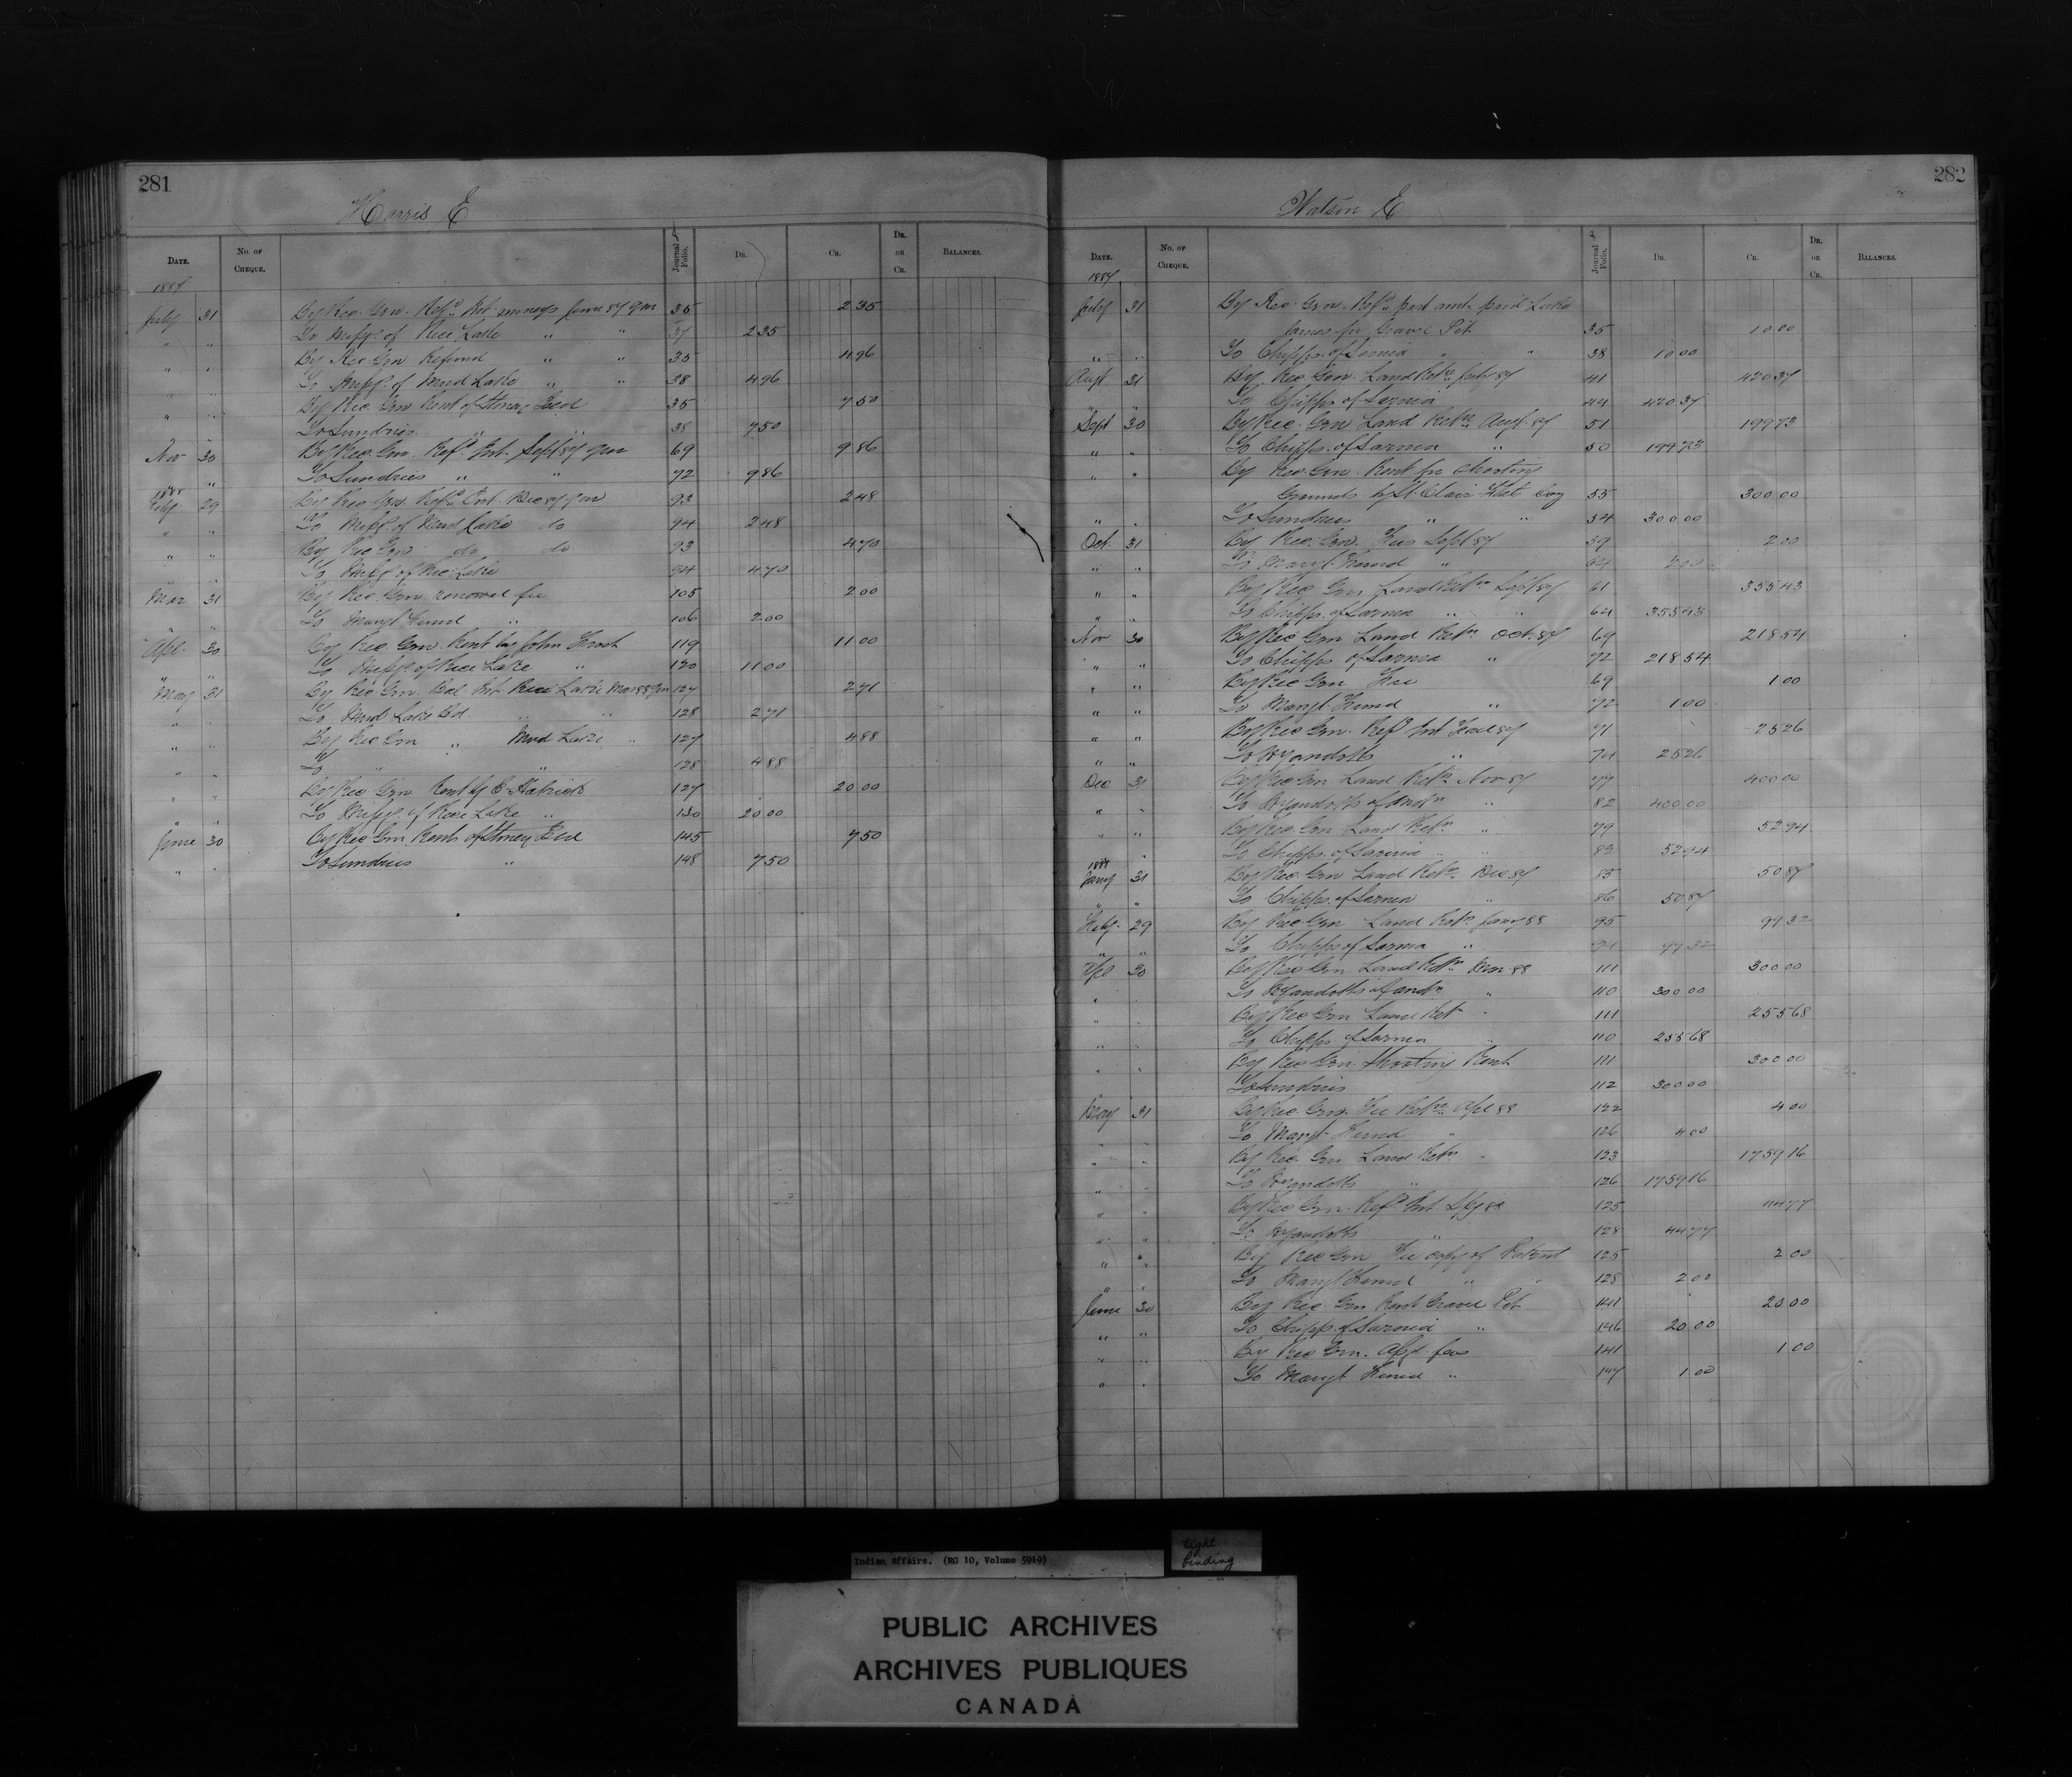 281
Harris E
DATE. NO. OF CHEQUE. Journal Folio. DR. CR. DR. OR CR. BALANCES.
1887
July 31 By Rec. Gen. Refd. Int. moneys June 87 qur 35 2 35
" " To Missgs. of Rice Lake " " 37 2 35
" " By Rec Gen Refund " " 35 4 96
" " To Missgs. of Mud Lake " " 38 4 96
" " By Rec. Gen Rent of Stoney 35 7 50
" " To Sundries " " 38 7 50
Nov 30 By Rec. Gen. Refd. Int. Sept 87 qur 69 9 86
" To Sundries " " 72 9 86
1888
Feby 29 By Rec Gen Refd. Int. Dec 87 qur 93 2 48
" " To Missgs. of Mud Lake do 94 2 48
" " By Rec Gen do do 93 4 70
" " To Missgs. of Rice Lake 94 4 70
Mar 31 By Rec. Gen. renewal fee 105 2 00
" " To Mangt Fund " 106 2 00
Apl 30 By Rec Gen. Rent by John 119 11 00
" " To Missgs. of Rice Lake " 120 11 00
May 31 By Rec Gen. Bal. Int. Rice Lake Mar 88 qur 127 2 71
" " To Mud Lake Bd. " " 128 2 71
" " By Rec Gen " Mud Lake " 127 4 88
" " To " " 128 4 88
" " By Rec Gen Rent of 127 20 00
" " To Missgs. of Rice Lake " 130 20 00
June 30 By Rec Gen Rent of Stoney 145 7 50
" " To Sundries " 148 7 50
282
Watson E
DATE. NO. OF CHEQUE. Journal Folio. DR. CR. DR. OR CR. BALANCES.
1887
July 31 By Rec. Gen. Refd. part amt. paid Luke
James for Gravel Pit 35 10 00
" " To Chipps. of Sarnia " " 38 10 00
Augt 31 By Rec Gen. Land Retn. July 87 41 420 37
" " To Chipps. of Sarnia 44 420 37
Sept 30 By Rec. Gen Land Retn. Augt. 87 51 199 73
" " To Chipps. of Sarnia " 50 199 73
" " By Rec. Gen. Rent for Shooting
Grounds by St. Clair Flat 55 300 00
" " To Sundries " " 54 300 00
Oct. 31 By Rec. Gen. Fees Sept 87 59 2 00
" " To Mangt. Fund " 64 2 00
" " By Rec Gen Land Retn Sept 87 61 355 43
" " To Chipps. of Sarnia " " 64 355 43
Nov 30 By Rec Gen Land Retn. Oct. 87 69 218 54
" " To Chipps of Sarnia " 72 218 54
" " By Rec Gen Fee 69 1 00
" " To Mangt Fund " 72 1 00
" " By Rec Gen. Refd Int 87 71 25 26
" " To Wyandotts " 74 25 26
Dec 31 By Rec Gen Land Retn. Nov 87 77 400 00
" " To Wyandotts of " 82 400 00
" " By Rec. Gen Land Retn. " 79 52 94
" To Chipps. of Sarnia " " 83 52 94
1888
Jany 31 By Rec. Gen Land Retn. Dec 87 85 50 87
" " To Chipps. of Sarnia " 86 50 87
Feby 29 By Rec Gen Land Retn. Jany 88 95 99 32
" " To Chipps of Sarnia " 94 99 32
Apl 30 By Rec Gen. Land Retn. Mar 88 111 300 00
" " To Wyandotts of " 110 300 00
" " By Rec Gen Land Retn " 111 255 68
" " To Chipps of Sarnia " 110 255 68
" " By Rec Gen. Shooting Rent 111 300 00
To Sundries 112 300 00
May 31 By Rec Gen. Fee Retn. Apl 88 122 4 00
To Mangt. Fund " 126 4 00
" " By Rec. Gen Land Retn " 123 1759 16
" " To Wyandotts " 126 1759 16
" " By Rec Gen. Refd Int 88 125 44 77
" " To Wyandotts " 128 44 77
" " By Rec Gen Fee copy of Patent 125 2 00
" " To Mangt Fund " " 128 2 00
June 30 By Rec Gen Rent Gravel Pit 141 20 00
" " To Chipps. of Sarnia " 146 20 00
" " By Rec Gen. fees 141 1 00
" " To Mangt Fund " 147 1 00
Indian Affairs. (RG 10, Volume 5919)
tight
binding
PUBLIC ARCHIVES
ARCHIVES PUBLIQUES
CANADA